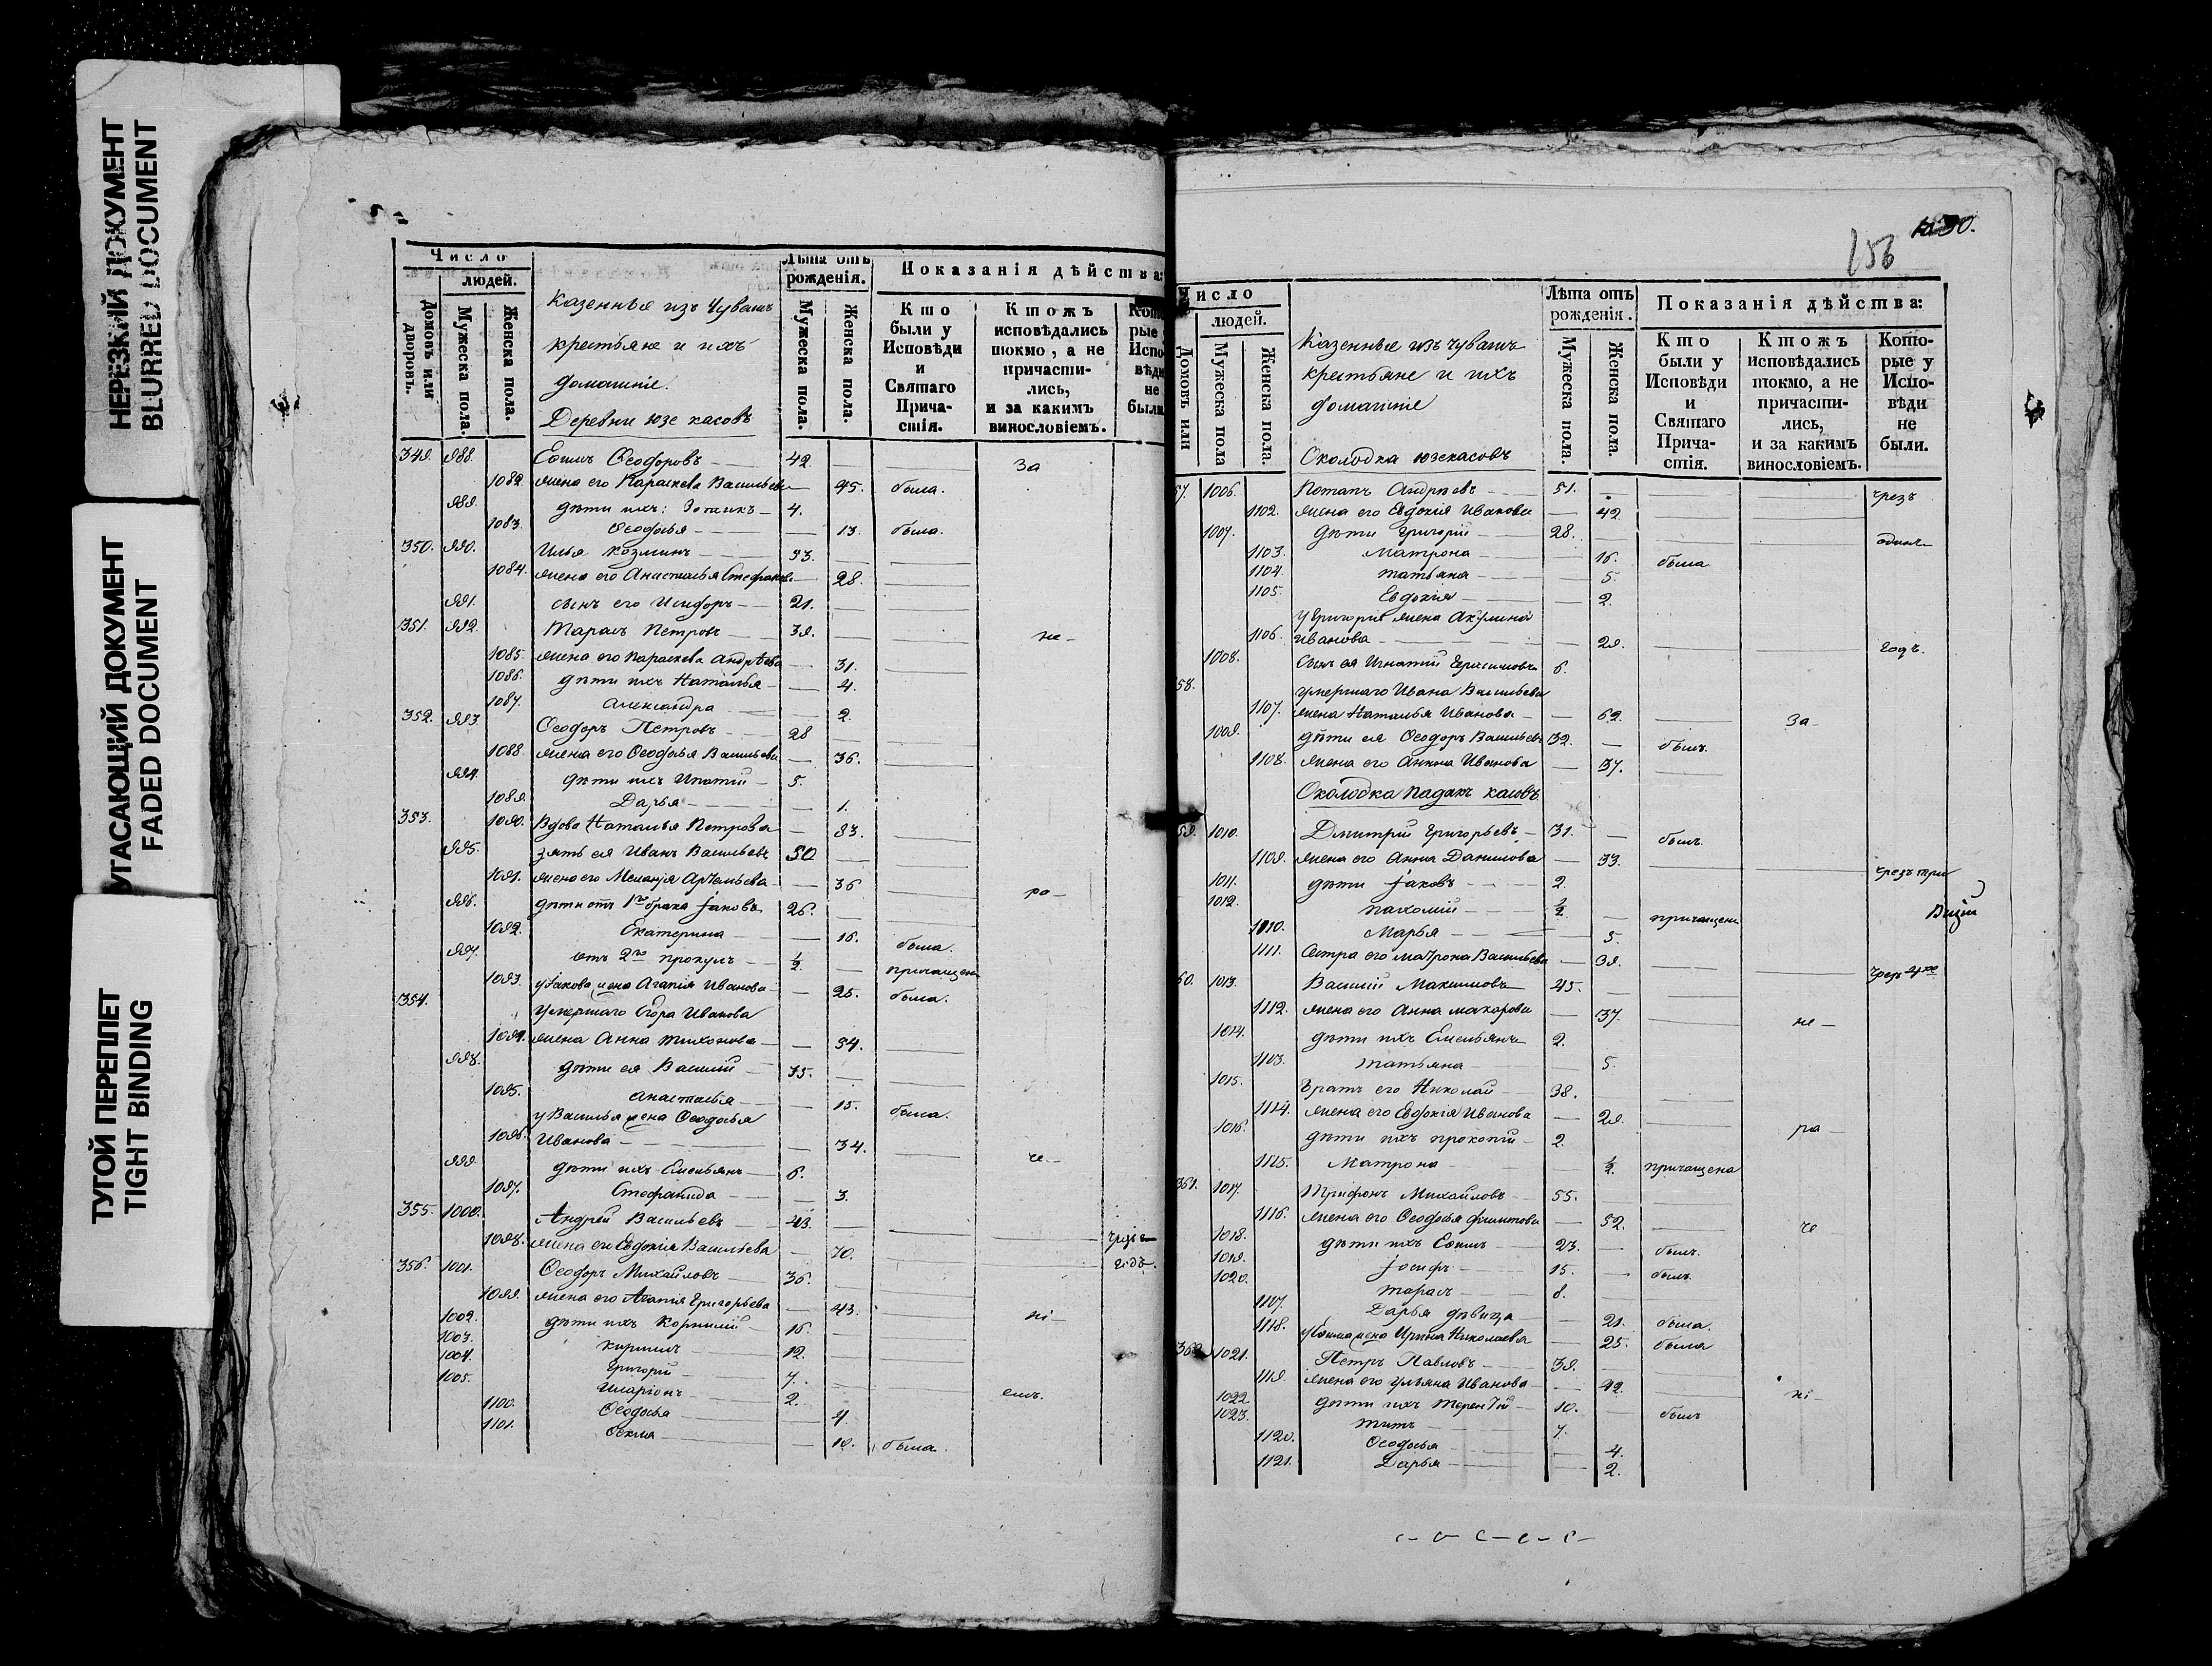 НЕРЕЗКИЙ ДОКУМЕНТ
BLURRED DOCUMENT
УГАСАЮЩИЙ ДОКУМЕНТ
FADED DOCUMENT
ТУГОЙ ПЕРЕПЛЕТ
TIGHT BINDING
Число
людей.
Домовъ или дворовъ.
Мужеска пола.
Женска пола.
Казенные изъ Чувашъ
крестьяне и ихъ
домашніе.
Деревни Юзе касовъ
Лѣта отъ рожденія.
Мужеска пола.
Женска пола.
Показанія дѣйства:
Кто были у Исповѣди и Святаго Причастія.
Ктожъ исповѣдались токмо, а не причастились, и за какимъ винословіемъ.
349. 988. Ефимъ Ѳеодоровъ 42. За
1082. жена его Параскева Васильева 45. была.
989. дѣти ихъ: Зотикъ 4.
1083. Ѳеодосья 13. была.
350. 990. Илья Козминъ 53.
1084. жена его Анастасья Стефанова 28.
991. сынъ его Исидоръ 21.
351. 992. Тарасъ Петровъ 39. не
1085. жена его Параскева Андрѣева 31.
1086. дѣти ихъ Наталья 4.
1087. Александра 2.
352. 993. Ѳеодоръ Петровъ 28
1088. жена его Ѳеодосья Васильева 36.
994. дѣти ихъ Ипатій 5.
1089. Дарья 1.
353. 1090. Вдова Наталья Петрова 83.
995. зять ея Иванъ Васильевъ 50
1091. жена его Меланья Артемьева 36 ра
996. дѣти отъ 1го брака Іаковъ 26.
1092. Екатерина 16. была.
997. отъ 2го прокулъ ½ причащенъ
1093. у Іакова жена Агапія Иванова 25. была.
354. Умершаго Егора Иванова
1094. жена Анна Тихонова 54.
998. дѣти ея Василій 35.
1095. Анастасья 15. была.
у Василья жена Ѳеодосья
1096. Иванова 34. че
999. дѣти ихъ Емельянъ 6.
1097. Стефанида 3.
355. 1000. Андрей Васильевъ 43.
1098. жена его Евдокія Васильева 70. чрезъ
356. 1001. Ѳеодоръ Михайловъ 36. годъ.
1099. жена его Агапія Григорьева 43. ні
1002. дѣти ихъ Корнилій 16.
1003. Кирилъ 12.
1004. Григорій 7.
1005. Иларіонъ 2. емъ.
1100. Ѳеодосья 4
1101. Ѳекла 10. была.
156
Число
людей.
Домовъ или
Мужеска пола
Женска пола.
Казенные изъ чувашъ
крестьяне и ихъ
домашніе
Околодка Юзекасовъ
Лѣта отъ рожденія.
Мужеска пола.
Женска пола.
Показанія дѣйства:
Кто были у Исповѣди и Святаго Причастія.
Ктожъ исповѣдались токмо, а не причастились, и за какимъ винословіемъ.
Которые у Исповѣди не были.
57. 1006. Потапъ Андреевъ 51. чрезъ
1102. жена его Евдокія Иванова 42
1007. дѣти Григорій 28. одинъ
1103. Матрона 16. была
1104. татьяна 5.
1105. Евдокія 2.
у Григорія жена Акулина
1106. Иванова 29. годъ.
1008. Сынъ ея Игнатій Герасимовъ 6.
58. умершаго Ивана Васильева
1107. жена Наталья Иванова 62. За
1009. дѣти ея Ѳеодоръ Васильевъ 32. былъ.
1108. жена его Анна Иванова 37.
Околодка Падакъ касовъ
59. 1010. Дмитрій Григорьевъ 31. былъ.
1109. жена его Анна Данилова 33.
1011. дѣти Іаковъ 2. чрезъ три
1012. пахомій ½ причащены
1110. Марья 5.
1111. Сестра его Матрона Васильева 39.
60. 1013. Василій Максимовъ 45.
1112. жена его Анна Макарова 37. не
1014. дѣти ихъ Емельянъ 2.
1103. татьяна 5.
1015. Братъ его Николай 38.
1114. жена его Евдокія Иванова 29.
1016. дѣти ихъ прокопій 2. ра
1115. Матрона ½ причащена
361. 1017. Трифонъ Михайловъ 55.
1116. жена его Ѳеодосья Филипова 52. че
1018. дѣти ихъ Ефимъ 23. былъ.
1019. Іосифъ 15. былъ.
1020. Тарасъ 8.
1107. Дарья дѣвица 21. была.
1118. у Ефима жена Ирина Николаева 25. была
362. 1021. Петръ Павловъ 39.
1119. жена его Ульяна Иванова 42. ні
1022. дѣти ихъ Терентій 10. былъ
1023. титъ 7.
1120. Ѳеодосья 4.
1121. Дарья 2.